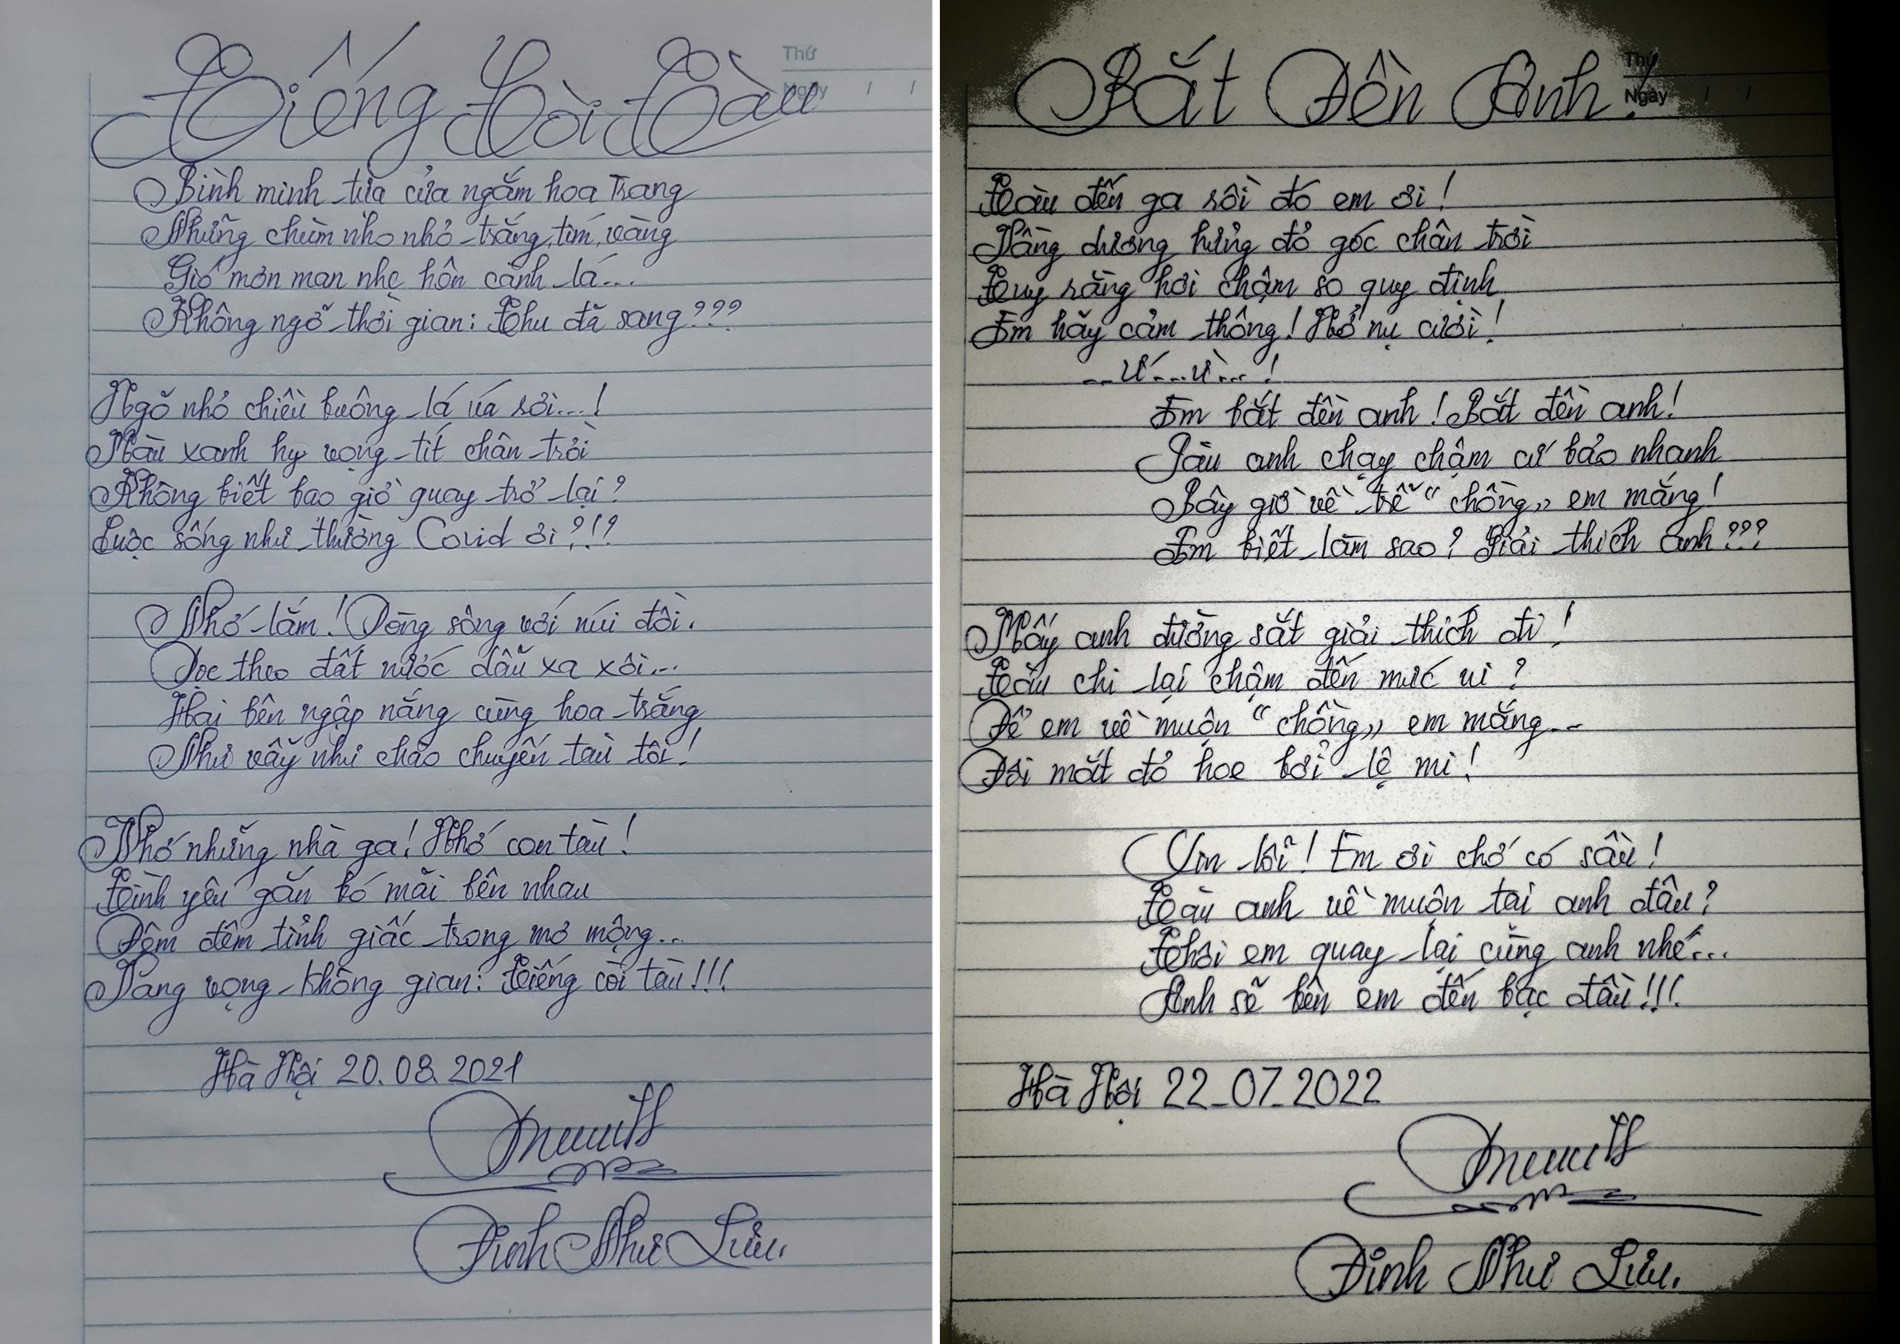 Tiếng Còi Tàu
Thứ
Ngày / /
Bình minh tựa cửa ngắm hoa Trang
Những chùm nho nhỏ trắng, tím, vàng
Gió mơn man nhẹ hôn cành lá...
Không ngỡ thời gian: Thu đã sang???
Ngõ nhỏ chiều buông lá úa rơi...!
Màu xanh hy vọng tít chân trời
Không biết bao giờ quay trở lại?
Cuộc sống như thường Covid ơi?!?
Nhớ lắm! Dòng sông với núi đồi.
Dọc theo đất nước dẫu xa xôi...
Hai bên ngập nắng cùng hoa trắng
Như vẫy như chào chuyến tàu tôi!
Nhớ những nhà ga! Nhớ con tàu!
Tình yêu gắn bó mãi bên nhau
Đêm đêm tỉnh giấc trong mơ mộng...
Vang vọng không gian: Tiếng còi tàu!!!
Hà Nội 20.08.2021
Đinh Như Lưu.
Bắt Đền Anh!
Thứ
Ngày / /
Tàu đến ga rồi đó em ơi!
Vầng dương hửng đỏ góc chân trời
Tuy rằng hơi chậm so quy định
Em hãy cảm thông! Nở nụ cười!
...Ứ...ừ...!
Em bắt đền anh! Bắt đền anh!
Tàu anh chạy chậm cứ bảo nhanh
Bây giờ về trễ "chồng" em mắng!
Em biết làm sao? Giải thích anh???
Mấy anh đường sắt giải thích đi!
Tàu chi lại chậm đến mức ni?
Để em về muộn "chồng" em mắng...
Đôi mắt đỏ hoe bởi lệ mi!
Xin lỗi! Em ơi chớ có sầu!
Tàu anh về muộn tại anh đâu?
Thôi em quay lại cùng anh nhé...
Anh sẽ bên em đến bạc đầu!!!
Hà Nội 22-07-2022
Đinh Như Lưu.